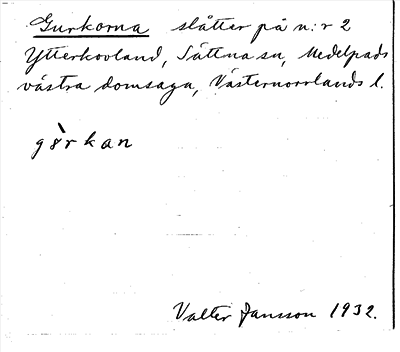 Gurkorna slåtter på n:r 2
Ytterkovland, Sättna sn, Medelpads
västra domsaga, Västernorrlands l.
gə̀rkan
Valter Jansson 1932.